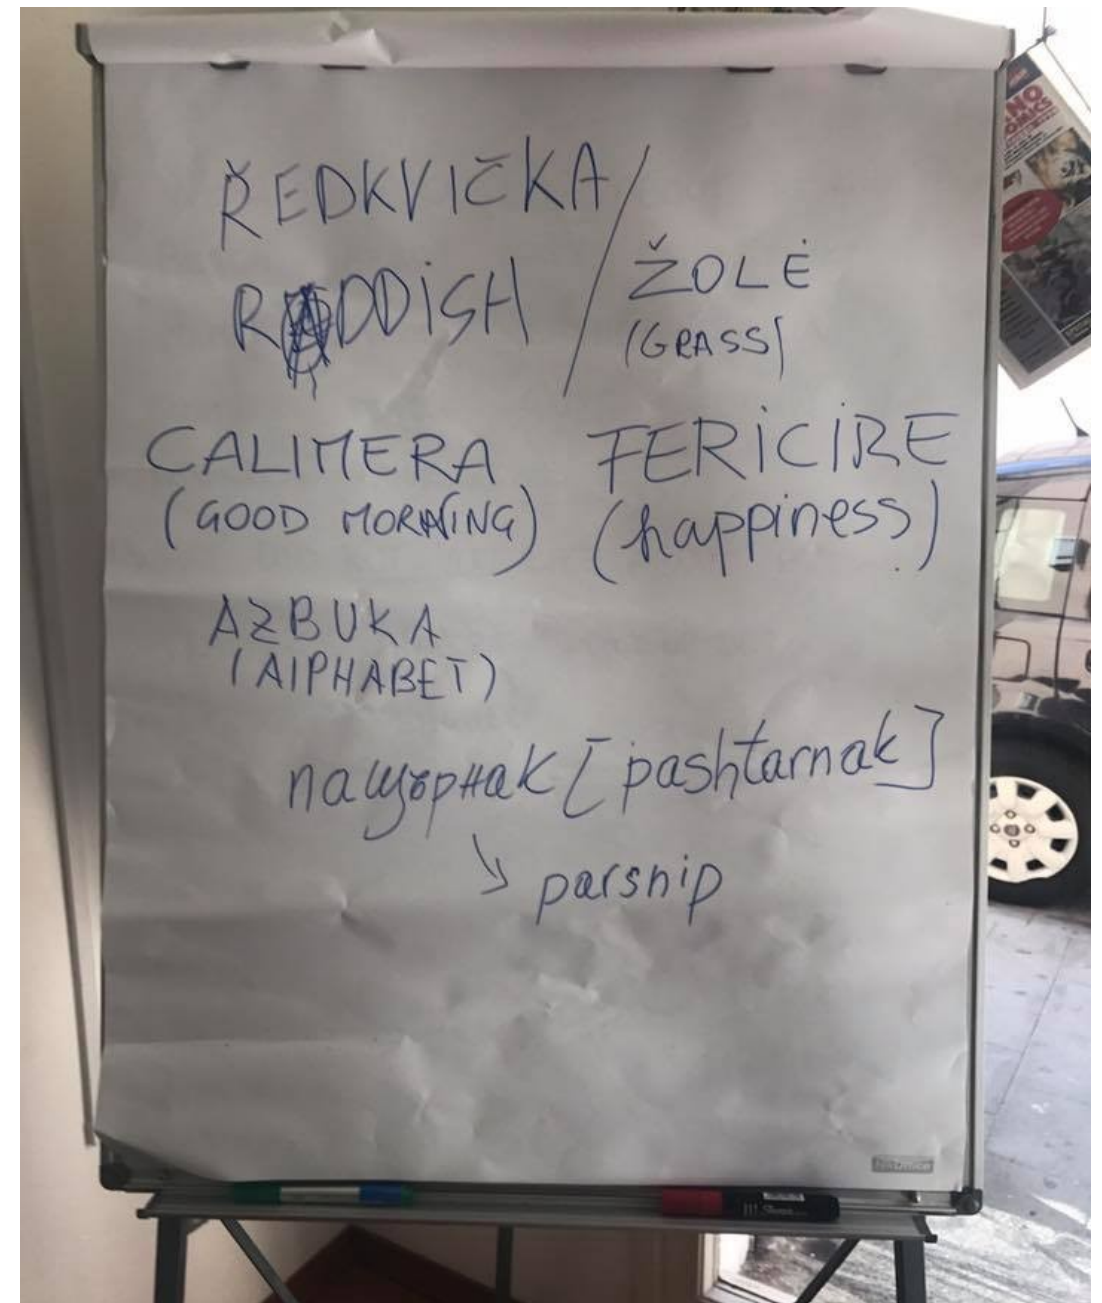 ŘEDKVIČKA /
RADDISH
ŽOLĖ
(GRASS)
CALIMERA
(GOOD MORNING)
FERICIRE
(happiness)
AZBUKA
(AlPHABET)
пащърнак [pashtarnak]
↘ parsnip
NO
OMICS